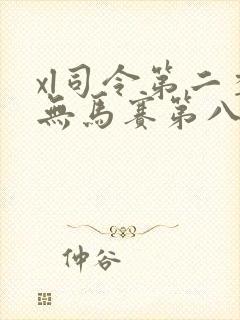 xl司令第二
無馬賽第八
仲谷